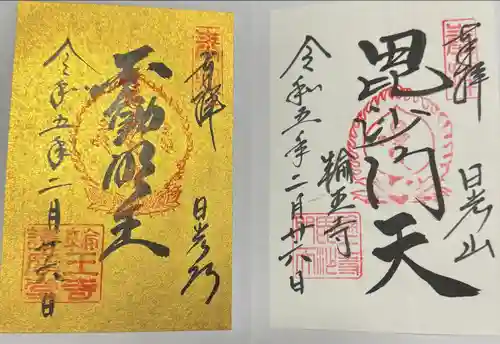 奉拝
不動明王
令和五年二月廿六日
日光山
輪王寺
奉拝
毘沙門天
日光山
輪王寺
令和五年二月廿六日